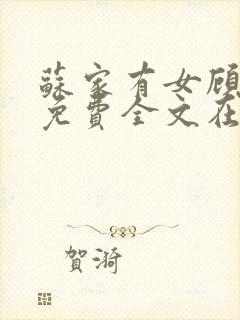 蘇家有女顧
免費全文在
賀漪